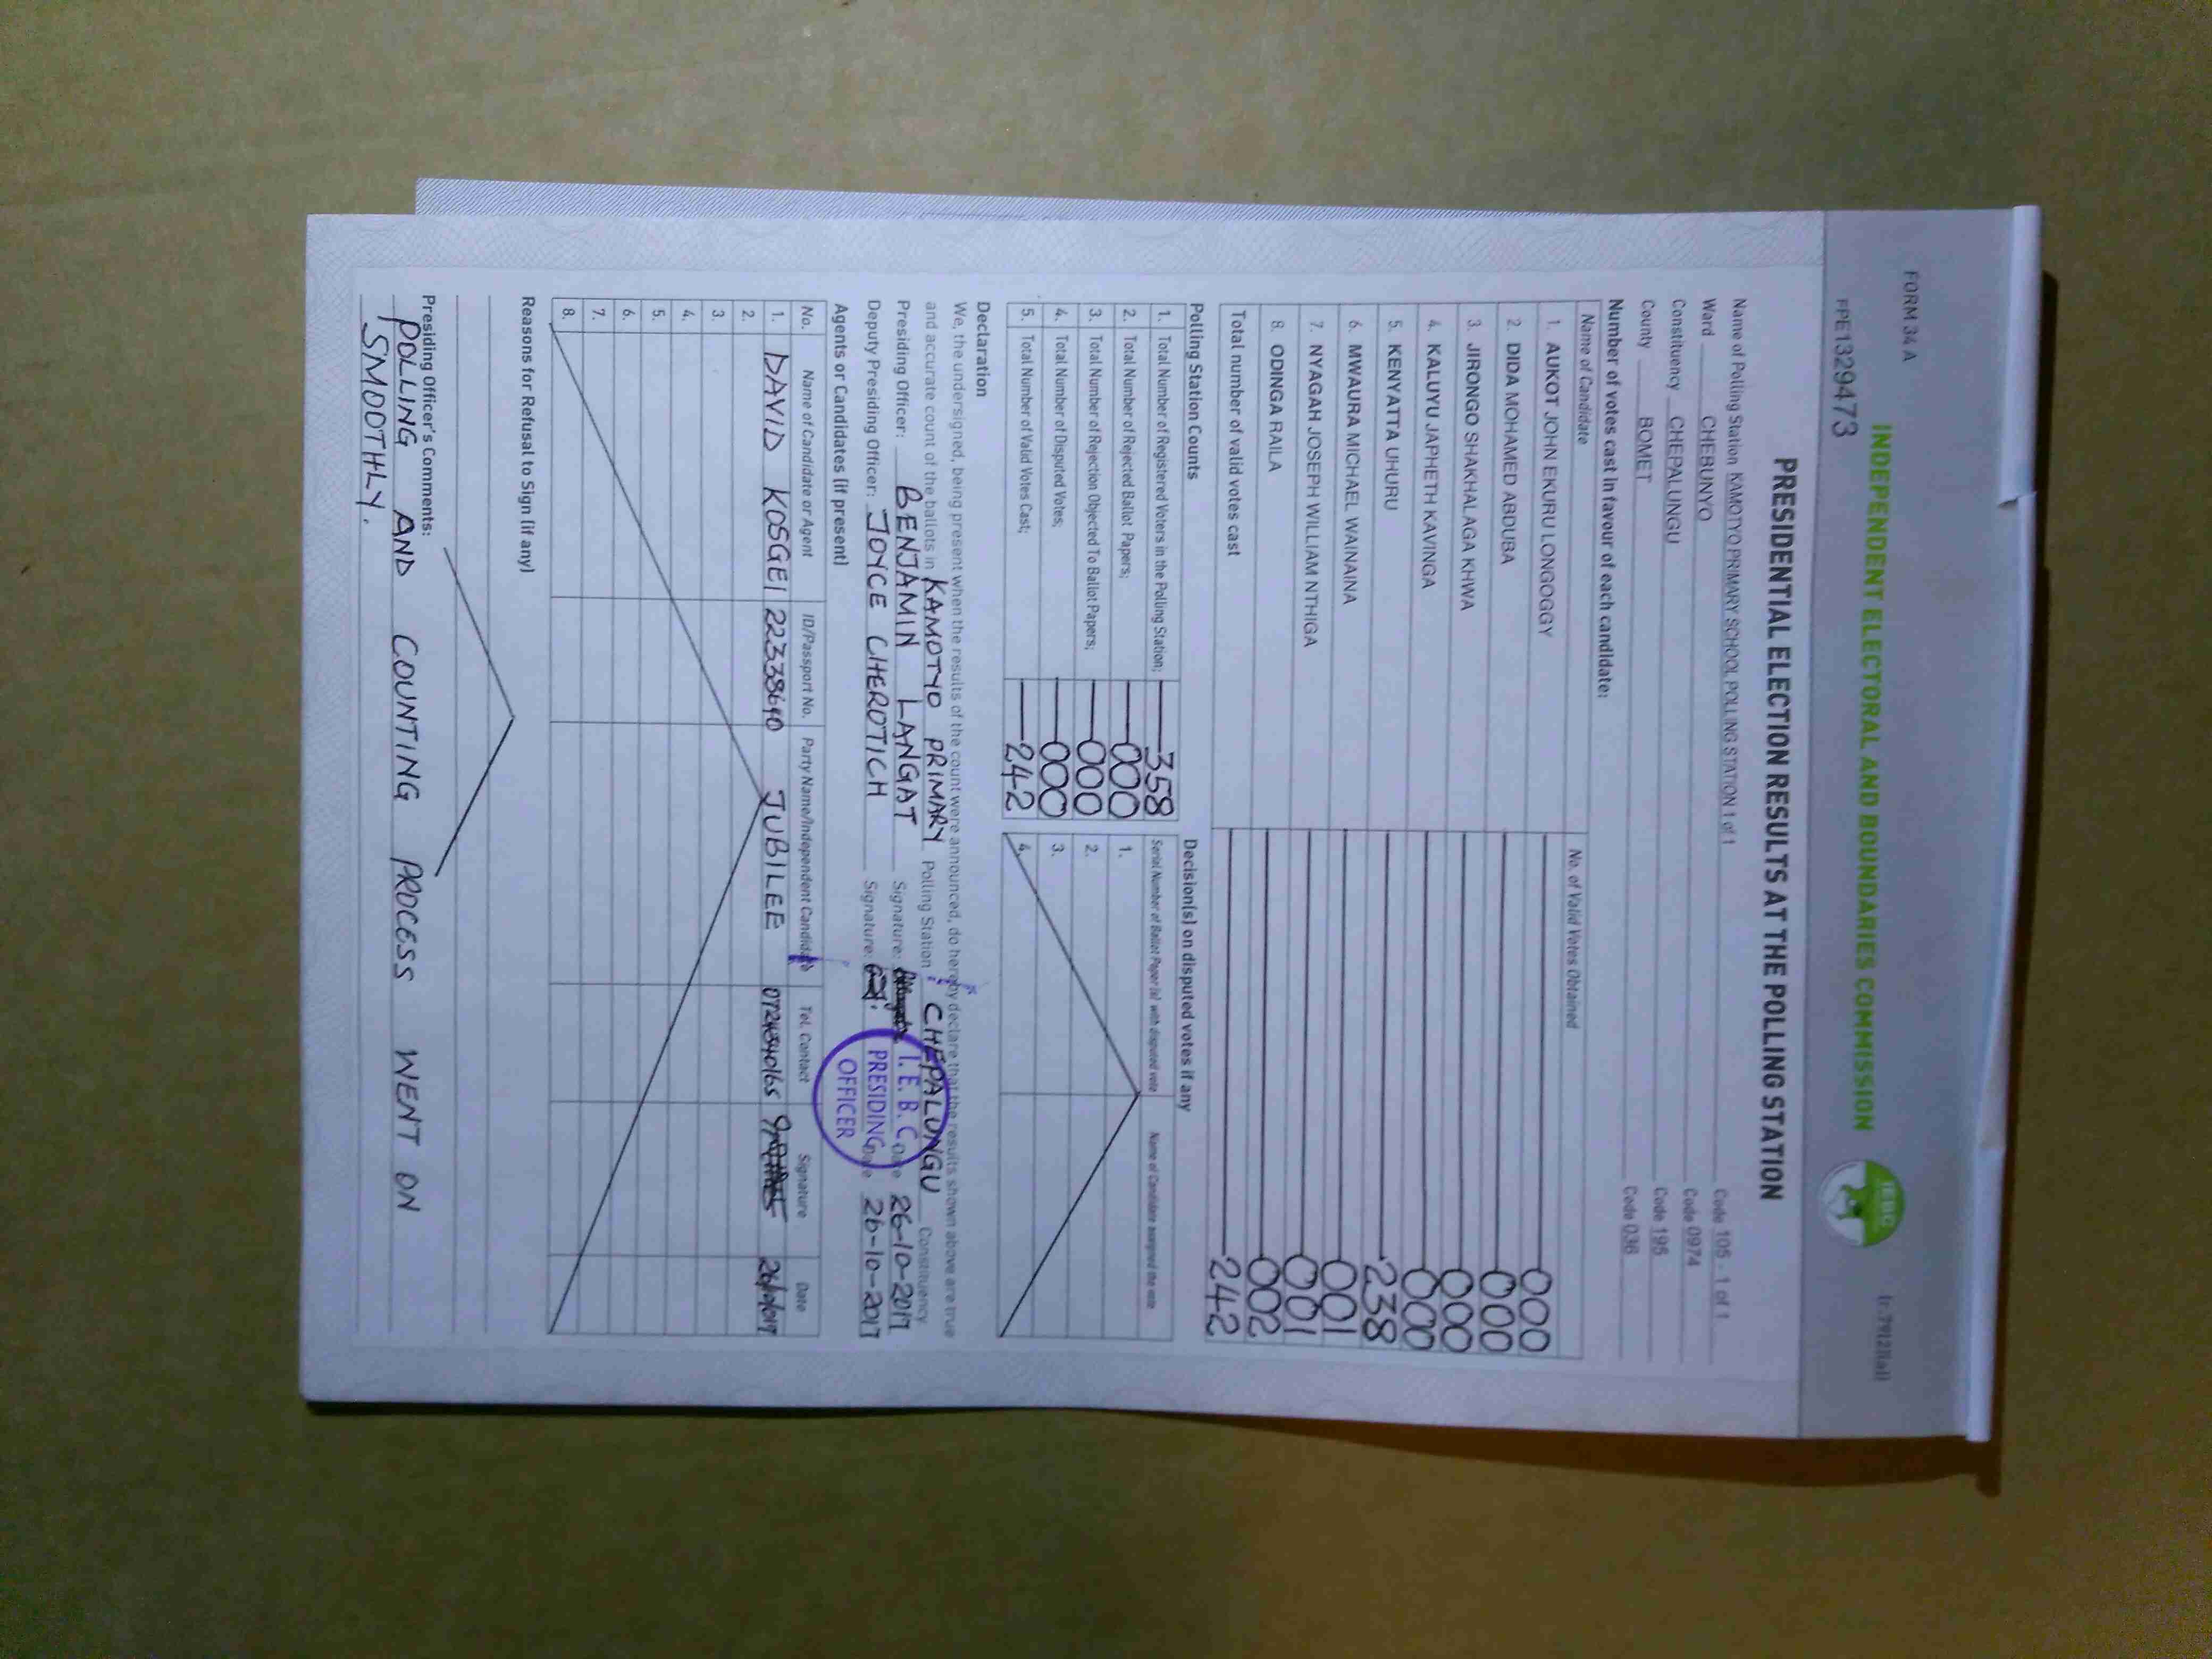 FORM 34 A
(r.79(2)(a))
FPE1329473
INDEPENDENT ELECTORAL AND BOUNDARIES COMMISSION
IEBC
PRESIDENTIAL ELECTION RESULTS AT THE POLLING STATION
Name of Polling Station KAMOTYO PRIMARY SCHOOL POLLING STATION 1 of 1 Code 105 - 1 of 1
Ward CHEBUNYO Code 0974
Constituency CHEPALUNGU Code 195
County BOMET Code 036
Number of votes cast in favour of each candidate:
Name of Candidate No. of Valid Votes Obtained
1. AUKOT JOHN EKURU LONGOGGY 000
2. DIDA MOHAMED ABDUBA 000
3. JIRONGO SHAKHALAGA KHWA 000
4. KALUYU JAPHETH KAVINGA 000
5. KENYATTA UHURU 238
6. MWAURA MICHAEL WAINAINA 001
7. NYAGAH JOSEPH WILLIAM NTHIGA 001
8. ODINGA RAILA 002
Total number of valid votes cast 242
Polling Station Counts
1. Total Number of Registered Voters in the Polling Station; 358
2. Total Number of Rejected Ballot Papers; 000
3. Total Number of Rejection Objected To Ballot Papers; 000
4. Total Number of Disputed Votes; 000
5. Total Number of Valid Votes Cast; 242
Decision(s) on disputed votes if any
Serial Number of Ballot Paper (s) with disputed vote Name of Candidate assigned the vote
1.
2.
3.
4.
Declaration
We, the undersigned, being present when the results of the count were announced, do hereby declare that the results shown above are true
and accurate count of the ballots in KAMOTYO PRIMARY Polling Station; CHEPALUNGU Constituency
Presiding Officer: BENJAMIN LANGAT Signature: Date 26-10-2017
Deputy Presiding Officer: JOYCE CHEROTICH Signature: Date 26-10-2017
I.E.B.C
PRESIDING
OFFICER
Agents or Candidates (if present)
No. Name of Candidate or Agent ID/Passport No. Party Name/Independent Candidate Tel. Contact Signature Date
1. DAVID KOSGEI 22338640 JUBILEE
2.
3.
4.
5.
6.
7.
8.
Reasons for Refusal to Sign (if any)
Presiding Officer's Comments:
POLLING AND COUNTING PROCESS WENT ON
SMOOTHLY.